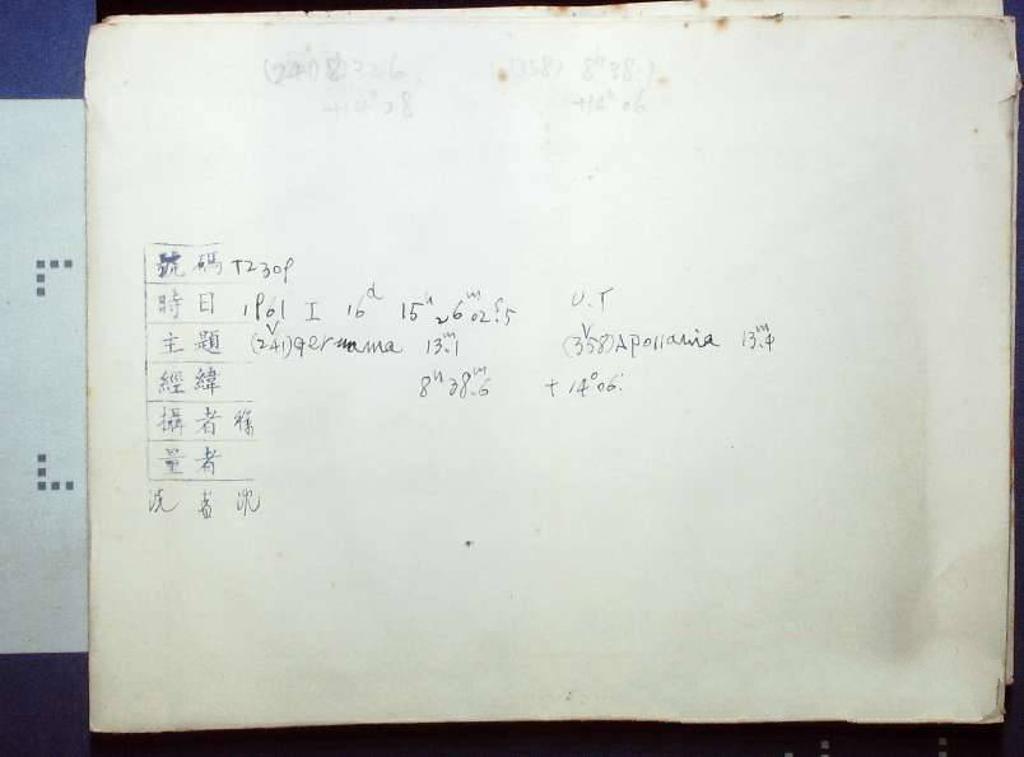 (241) 8 6 (358) 8ʰ38.
+14° 8 +14° 06
號碼 T2309
時日 1961 I 16ᵈ 15ʰ 26ᵐ 02ˢ.5 U.T
主題 (241) Germania 13ᵐ.1 (358) Apollonia 13ᵐ.4
經緯 8ʰ 38ᵐ.6 +14°06'
攝者
量者
洗者 沈